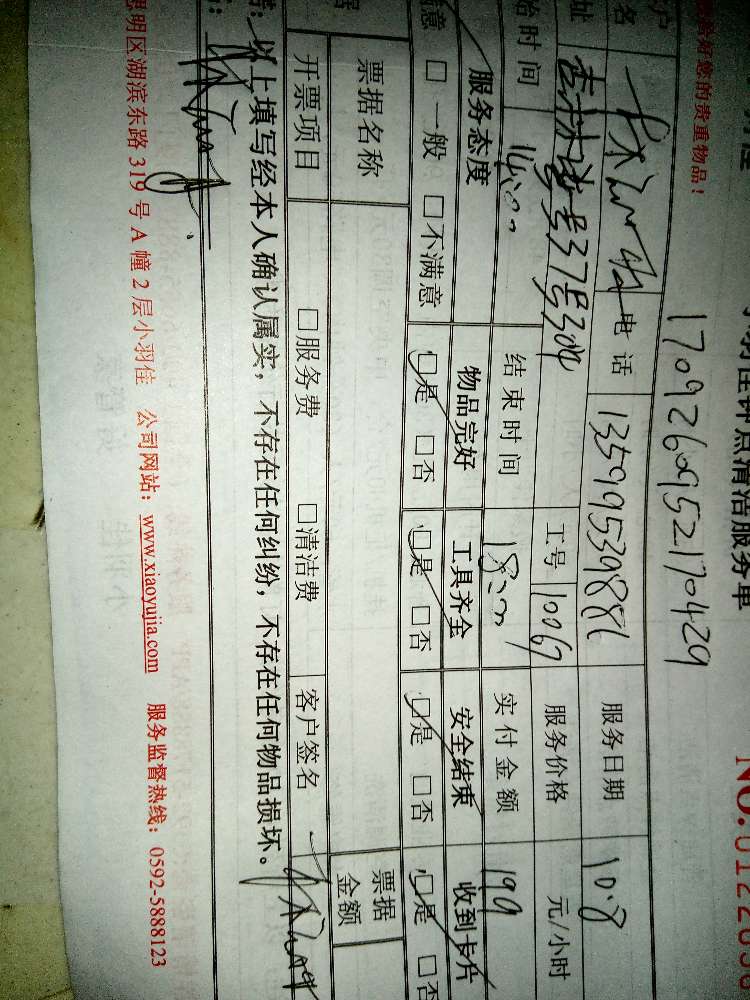 小羽佳钟点清洁服务单 NO.
保管好您的贵重物品!
1709260952170429
电话 13599539886 服务日期 10.8
杏林 号37号304 工号 10067 服务价格 元/小时
始时间 14:00 结束时间 18:00 实付金额 199
服务态度 物品完好 工具齐全 安全结束 收到卡片
意 □一般 □不满意 □是 □否 □是 □否 □是 □否 □是 □否
票据名称 票据金额
开票项目 □服务费 □清洁费 客户签名
以上填写经本人确认属实，不存在任何纠纷，不存在任何物品损坏。
思明区湖滨东路319号A幢2层小羽佳 公司网站：www.xiaoyujia.com 服务监督热线：0592-5888123